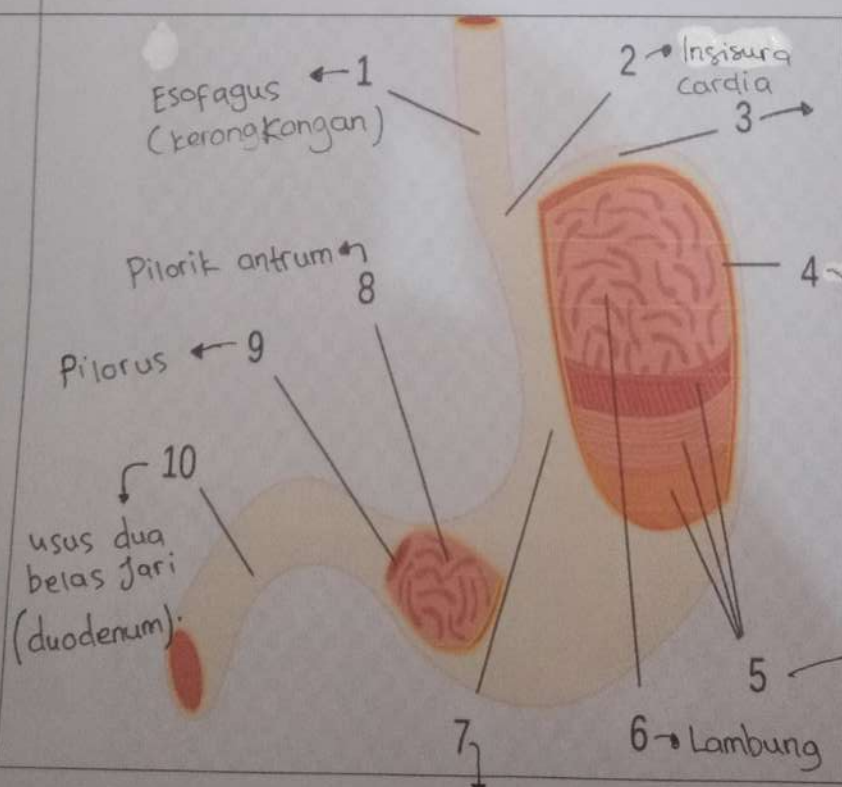 Esofagus ← 1
(kerongkongan)
2 → Insisura
cardia
3 →
Pilorik antrum
8
4
Pilorus ← 9
10
usus dua
belas Jari
(duodenum).
5
7
6 → Lambung